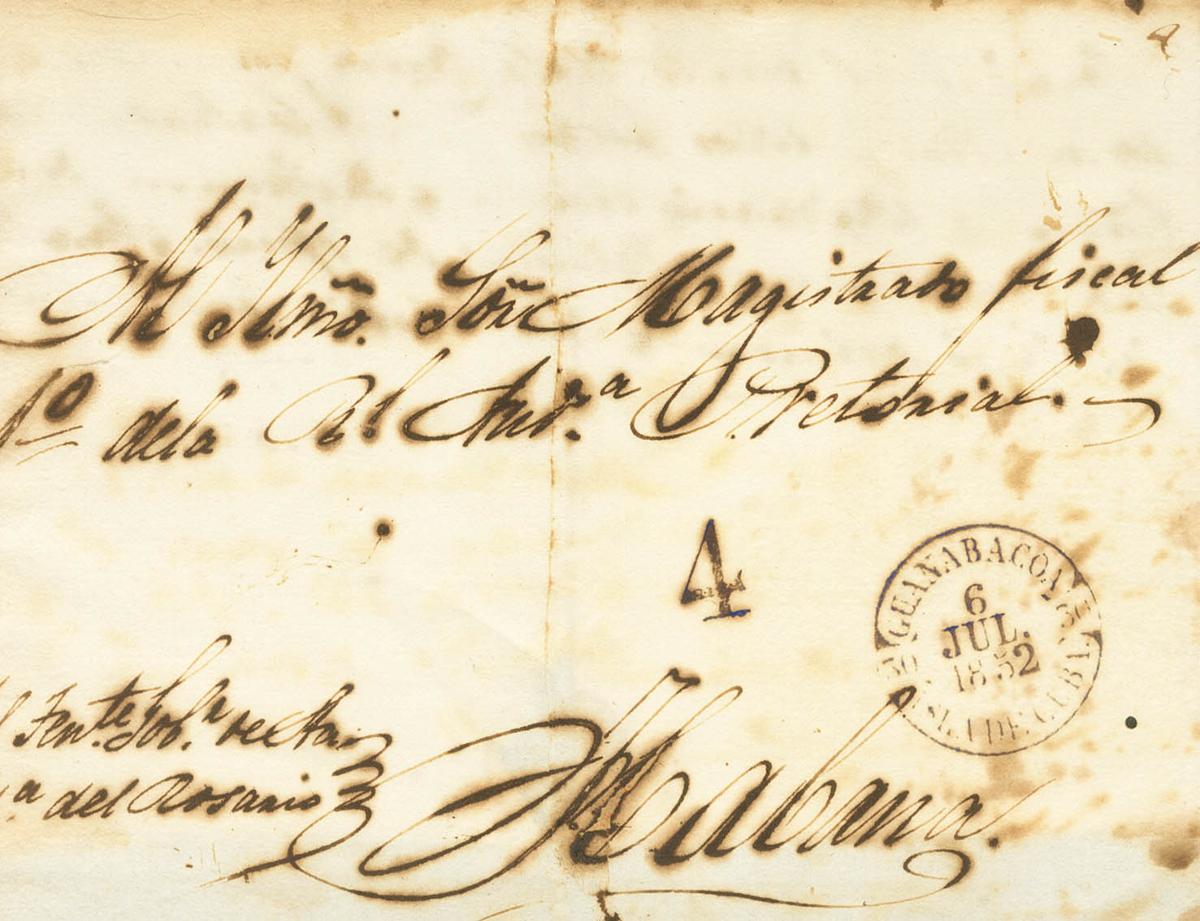 Al Ilmõ. Señr Magistrado fiscal
1º dela Rl Aud.ª Pretorial.
4
GUANABACOA
6
JUL.
1852
ISLA DE CUBA.
Ten.te Gob.r de Sta.
del Rosario
Habana.